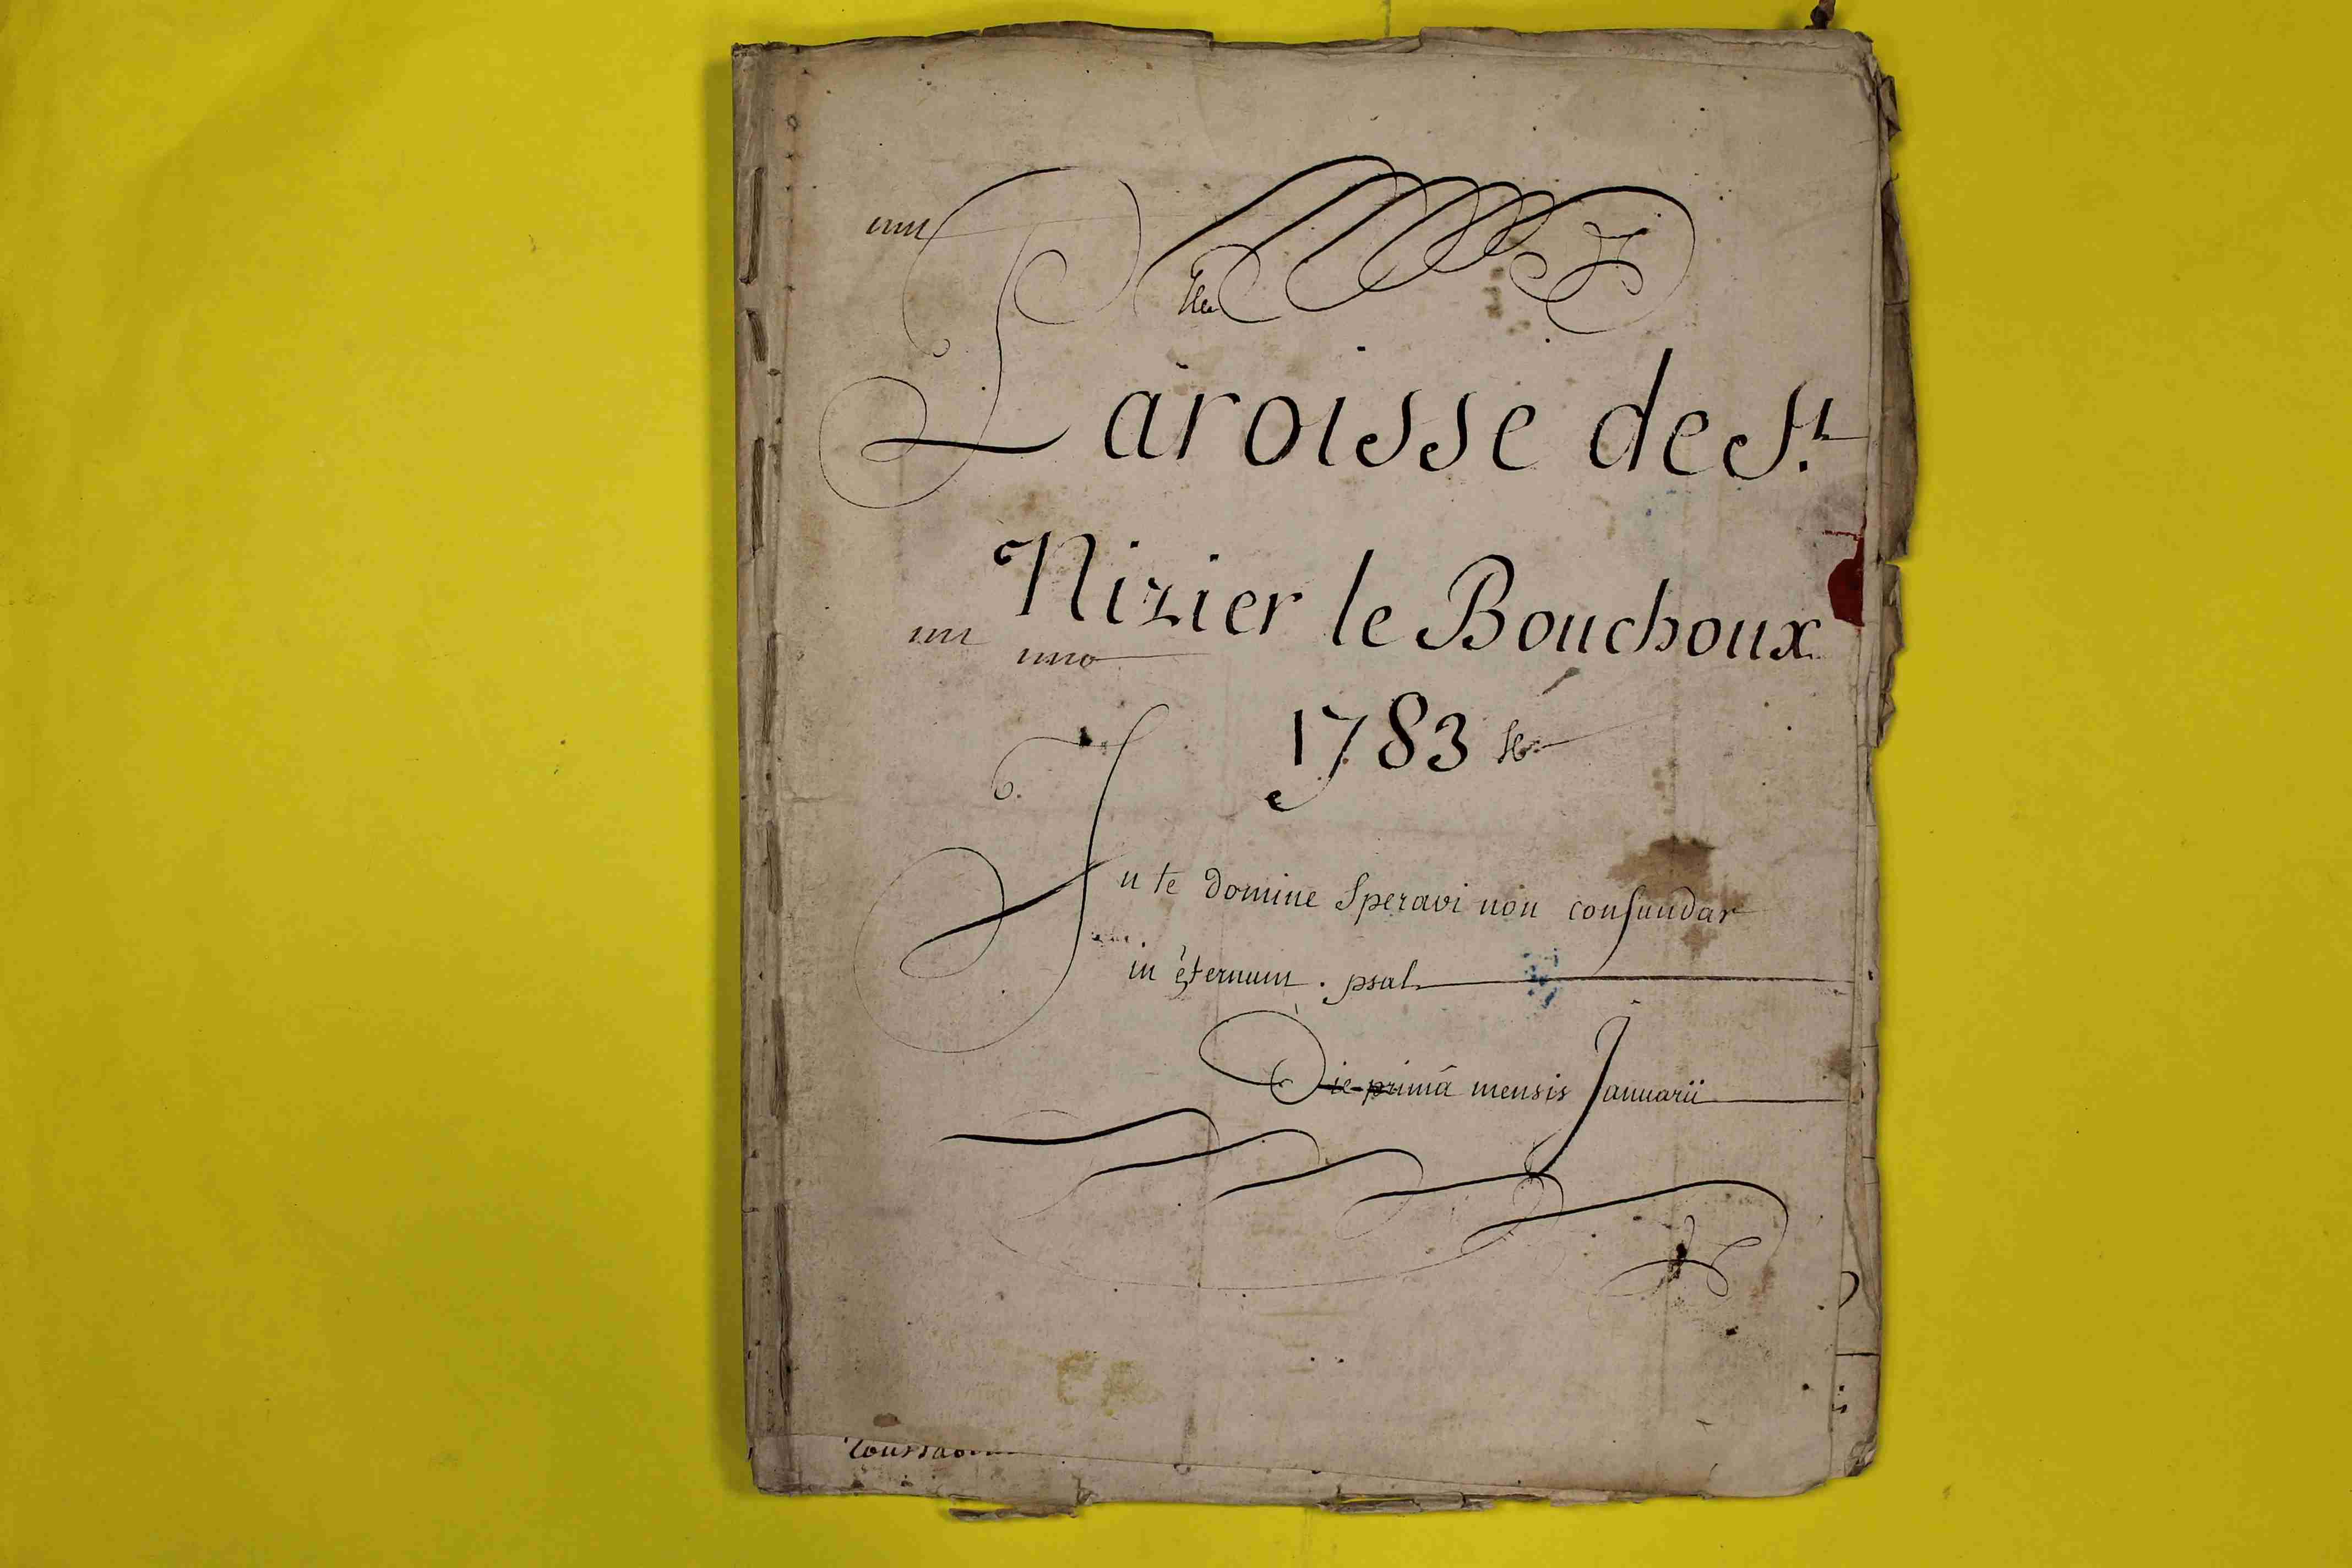 Paroisse de St.
Nizier le Bouchoux
1783
In te Domine Speravi non confundar
in èternum. psal
Die primâ mensis Januarii